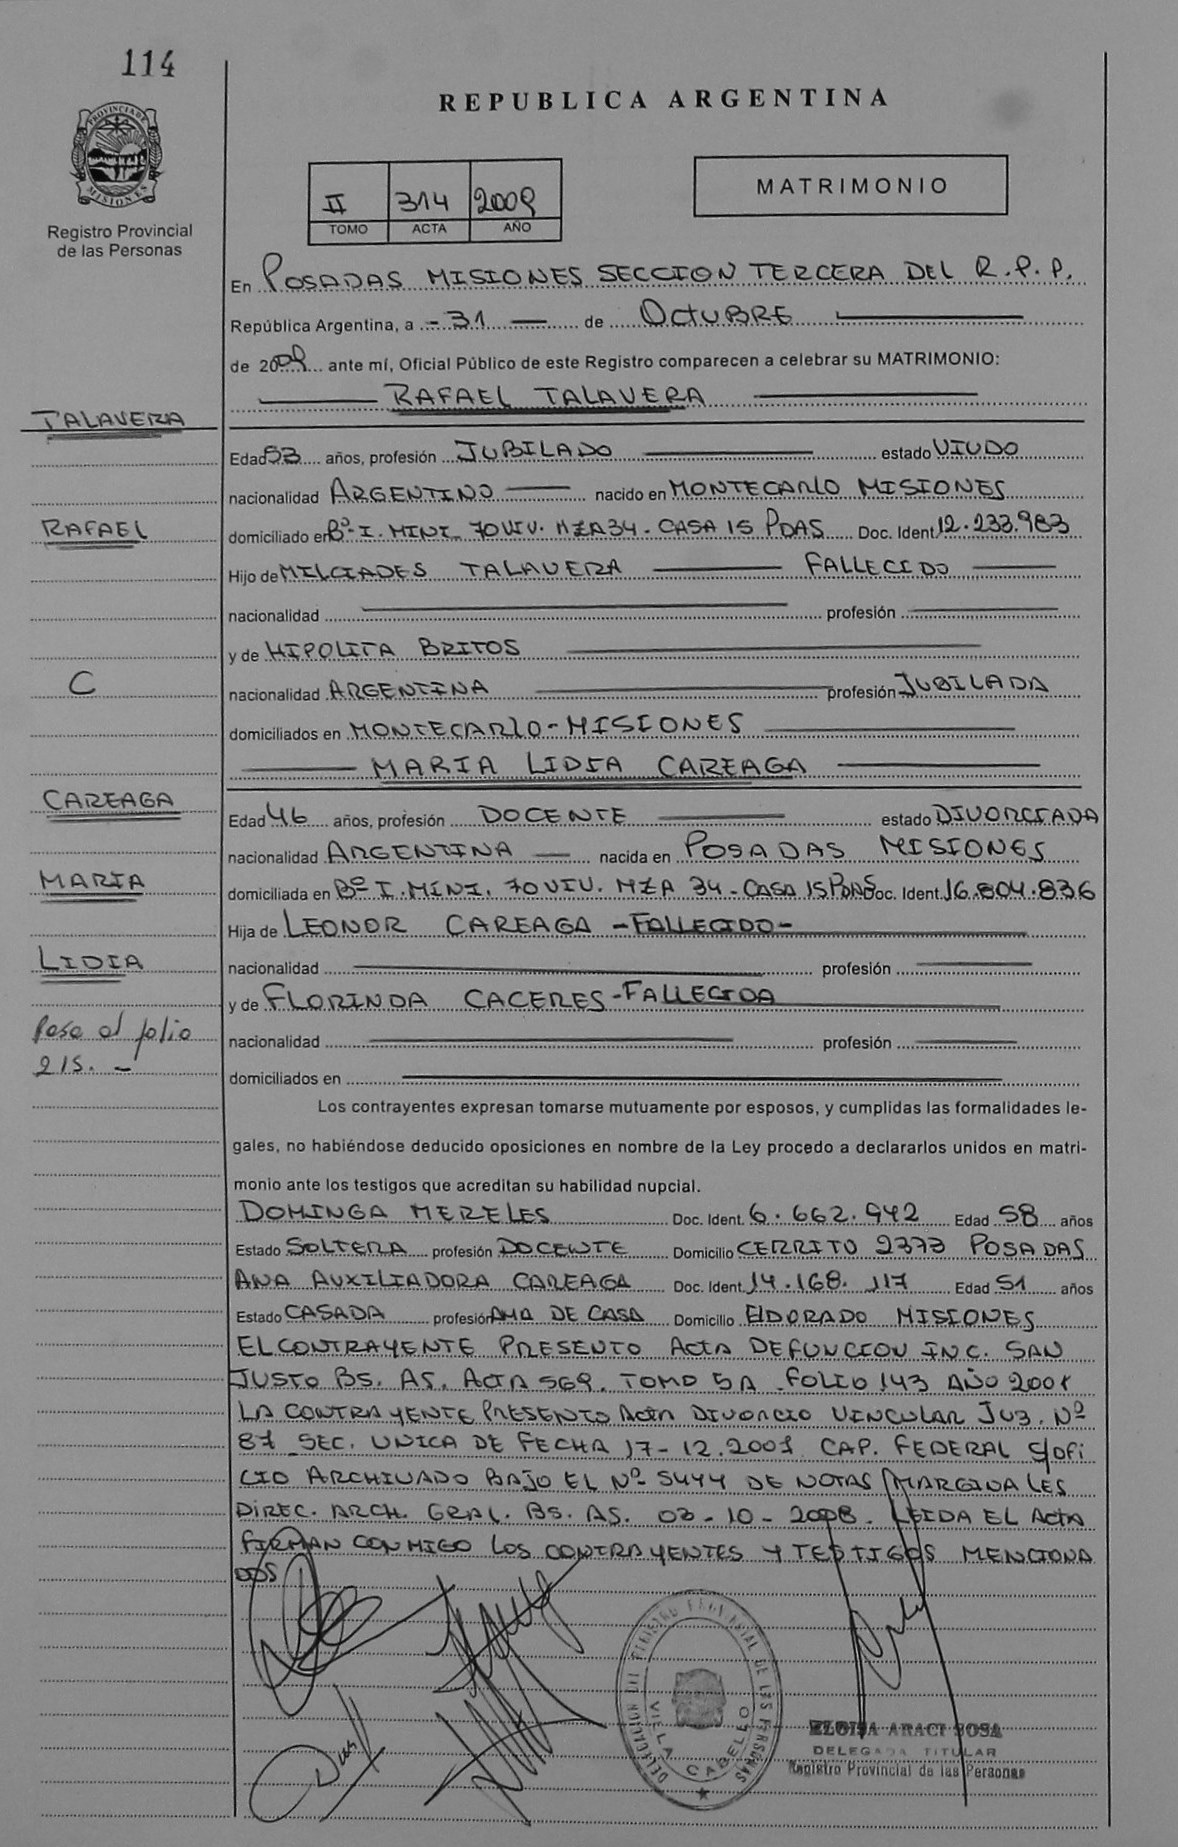 114
REPUBLICA ARGENTINA
PROVINCIA DE MISIONES
Registro Provincial
de las Personas
II 314 2009
TOMO ACTA AÑO
MATRIMONIO
En POSADAS MISIONES SECCION TERCERA DEL R.P.P.
República Argentina, a - 31 — de OCTUBRE
de 2009 ante mí, Oficial Público de este Registro comparecen a celebrar su MATRIMONIO:
RAFAEL TALAVERA
TALAVERA
Edad 53 años, profesión JUBILADO estado VIUDO
nacionalidad ARGENTINO nacido en MONTECARLO MISIONES
RAFAEL
domiciliado en Bº I. MINI. 70 VIV. MZA 34 - CASA 15 PDAS Doc. Ident. 12.233.983
Hijo de MILCIADES TALAVERA FALLECIDO
nacionalidad profesión
y de HIPOLITA BRITOS
C
nacionalidad ARGENTINA profesión JUBILADA
domiciliados en MONTECARLO - MISIONES
MARIA LIDIA CAREAGA
CAREAGA
Edad 46 años, profesión DOCENTE estado DIVORCIADA
nacionalidad ARGENTINA nacida en POSADAS MISIONES
MARIA
domiciliada en Bº I. MINI. 70 VIV. MZA 34 - CASA 15 PDAS Doc. Ident. 16.804.836
Hija de LEONOR CAREAGA - FALLECIDO -
LIDIA
nacionalidad profesión
y de FLORINDA CACERES - FALLECIDA
Pasa al folio
215. -
nacionalidad profesión
domiciliados en
Los contrayentes expresan tomarse mutuamente por esposos, y cumplidas las formalidades le-
gales, no habiéndose deducido oposiciones en nombre de la Ley procedo a declararlos unidos en matri-
monio ante los testigos que acreditan su habilidad nupcial.
DOMINGA MERELES Doc. Ident. 6.662.942 Edad 58 años
Estado SOLTERA profesión DOCENTE Domicilio CERRITO 2373 POSADAS
ANA AUXILIADORA CAREAGA Doc. Ident. 14.168.117 Edad 51 años
Estado CASADA profesión AMA DE CASA Domicilio ELDORADO MISIONES
EL CONTRAYENTE PRESENTO ACTA DEFUNCION INC. SAN
JUSTO BS. AS. ACTA 569. TOMO 5A FOLIO 143 AÑO 2001
LA CONTRAYENTE PRESENTO ACTA DIVORCIO VINCULAR JUZ. Nº
87 SEC. UNICA DE FECHA 17-12.2001 CAP. FEDERAL C/OFI
CIO ARCHIVADO BAJO EL Nº 5444 DE NOTAS MARGINALES
DIREC. ARCH. GRAL. BS. AS. 03-10-2008. LEIDA EL ACTA
FIRMAN CONMIGO LOS CONTRAYENTES Y TESTIGOS MENCIONA
DOS
DELEGACION DEL REGISTRO PROVINCIAL DE LAS PERSONAS
VILLA CABELLO
ELOISA ARACI SOSA
DELEGADA TITULAR
Registro Provincial de las Personas